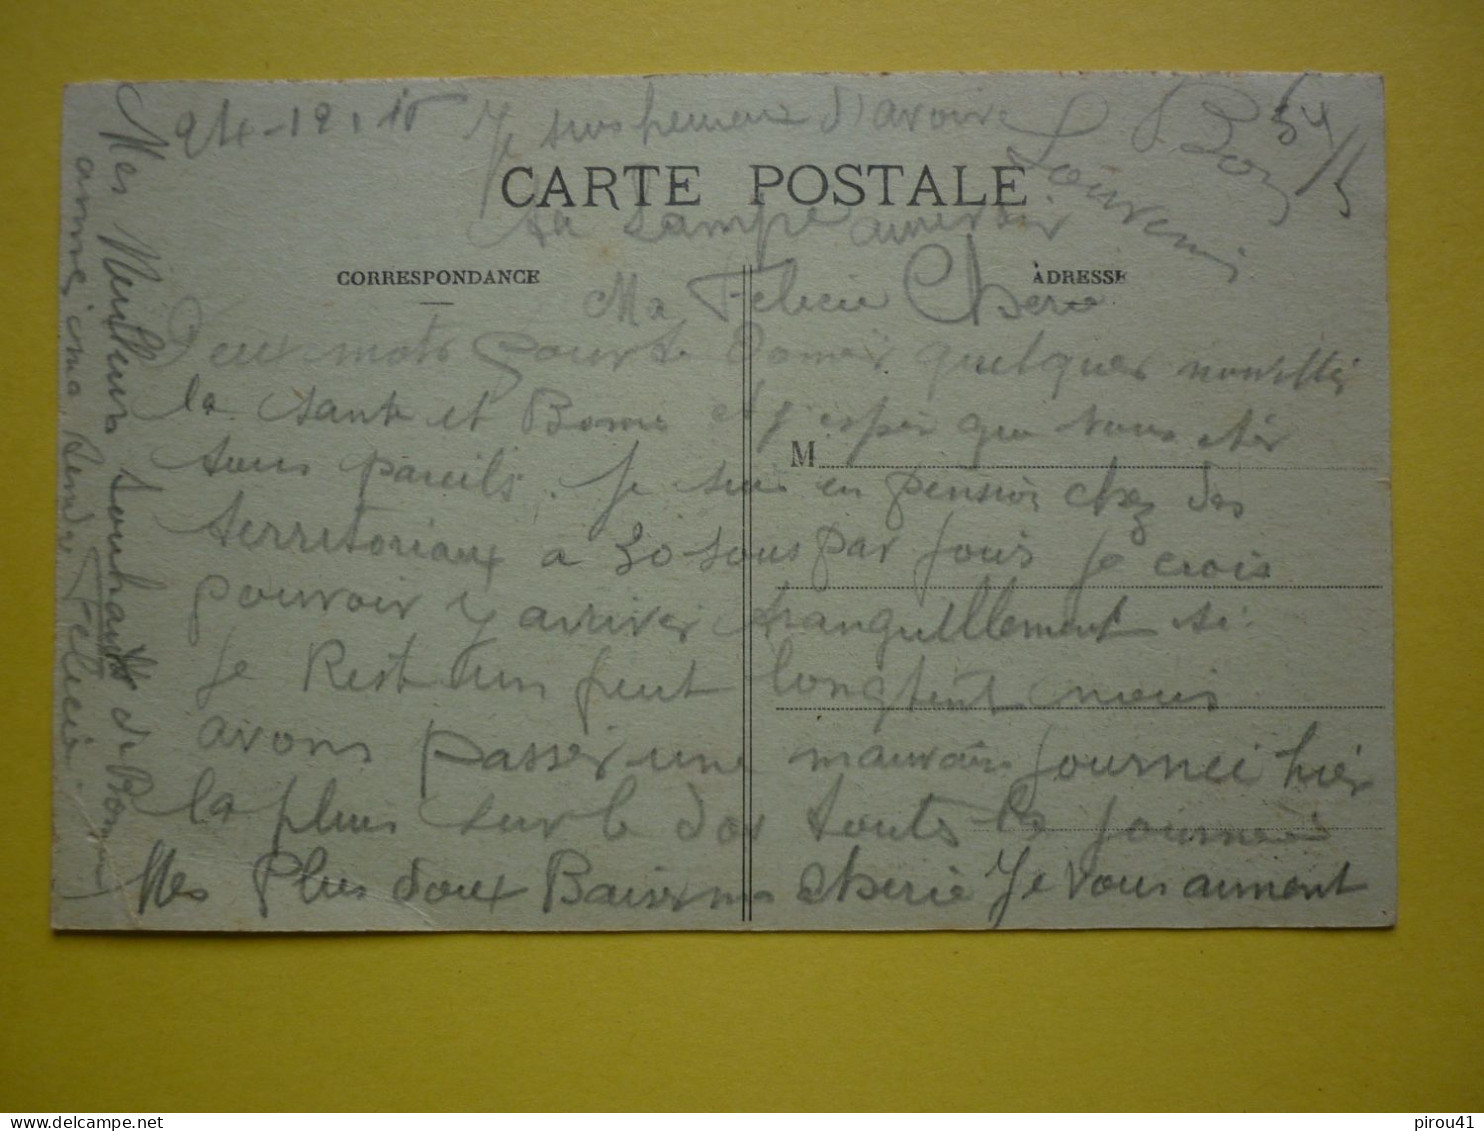 24-12-15 Je suis hereux d'avoire
ta Lampe
CARTE POSTALE
CORRESPONDANCE
ADRESSE
Ma Felicie Cherie
Deux mots pour te Donner quelques nouvelles
la Sante et Bonne et j'esper que vous cher
M
sous pareils. Je suis en pension chez des
territoriaux a 30 sous par jours je crois
pouvoir y arriver tranquillement si
je Rest un peut longtent nous
avons passer une mauvais journee hier
la pluie sur le dos toute la journee
Mes Plus doux Baisers ma cherie Je vous aiment
Mes Meilleurs Souhaits de Bonne
annee ma Felicie
pirou41